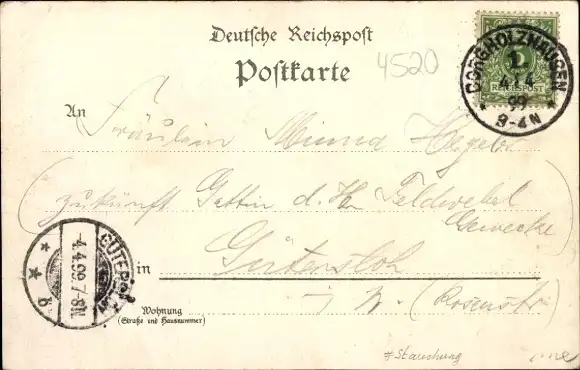 Deutsche Reichspost
Postkarte
4520
5
REICHSPOST
BORGHOLZHAUSEN
1.
4 4
99
3-4N
An Fräulein Minna
(zukünft. Gattin d. Hr. Feldwebel
Gewecke)
in Gütersloh
GÜTERSLOH
4.4.99.7-8N.
i. W. (Rosenstr
Wohnung
(Straße und Hausnummer)
*Stauchung